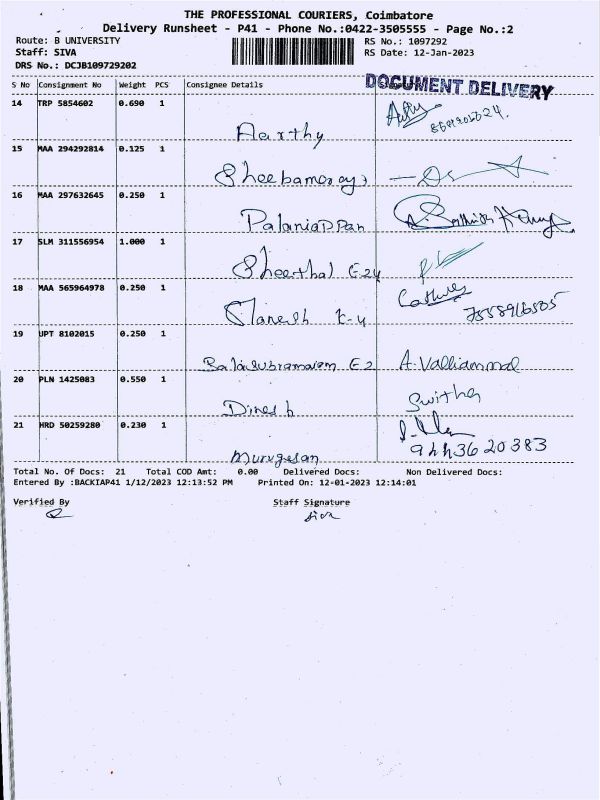 THE PROFESSIONAL COURIERS, Coimbatore
Delivery Runsheet - P41 - Phone No.:0422-3505555 - Page No.:2
Route: B UNIVERSITY RS No.: 1097292
Staff: SIVA RS Date: 12-Jan-2023
DRS No.: DCJB109729202
S No Consignment No Weight PCS Consignee Details DOCUMENT DELIVERY
14 TRP 5854602 0.690 1
Aarthy
15 MAA 294292814 0.125 1
16 MAA 297632645 0.250 1
Palaniappan
17 SLM 311556954 1.000 1
Sheethal E24
18 MAA 565964978 0.250 1
Manesh K-4
19 UPT 8102015 0.250 1
Balasubramaniam E2 A. Valliammal
20 PLN 1425083 0.550 1
Dinesh Switha
21 HRD 50259280 0.230 1
Murugesan
Total No. Of Docs: 21 Total COD Amt: 0.00 Delivered Docs: Non Delivered Docs:
Entered By :BACKIAP41 1/12/2023 12:13:52 PM Printed On: 12-01-2023 12:14:01
Verified By Staff Signature
Siva